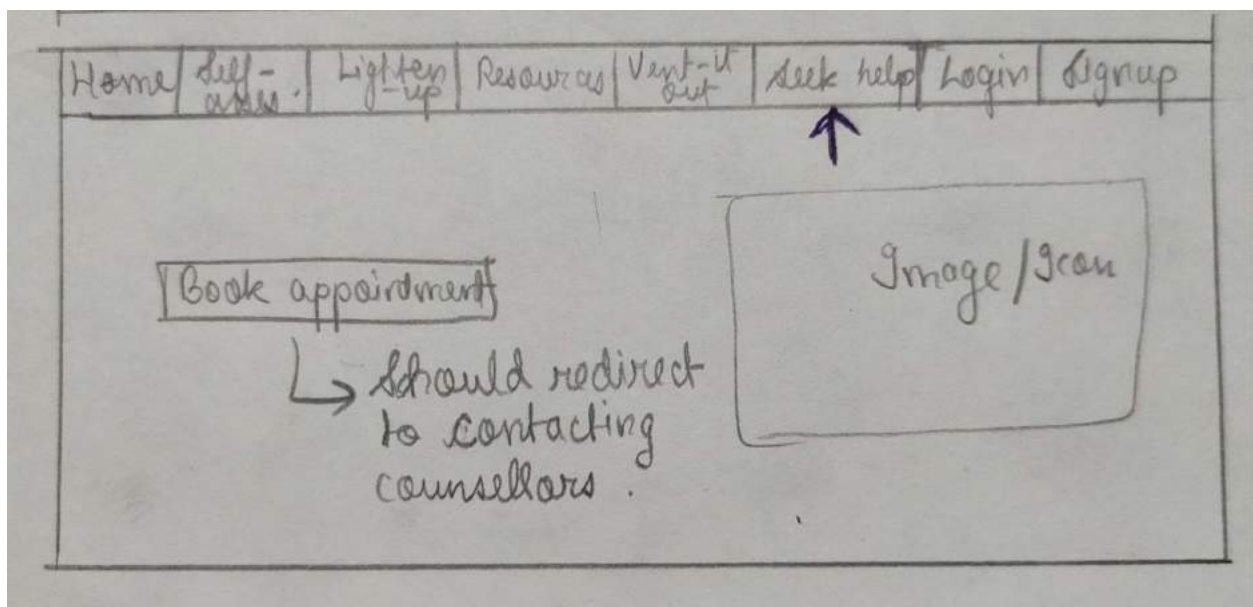 Home
Self-
asses.
Lighten
-up
Resources
Vent-it
out
Seek help
Login
Signup
Book appointment
Image/Icon
Should redirect
to contacting
counsellors.